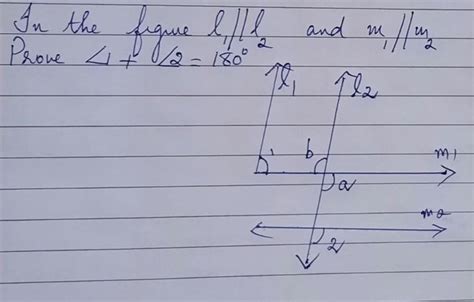 In the figure l₁//l₂ and m₁//m₂
Prove ∠1 + ∠2 = 180°
l₁
l₂
1
b
m₁
a
m₂
2